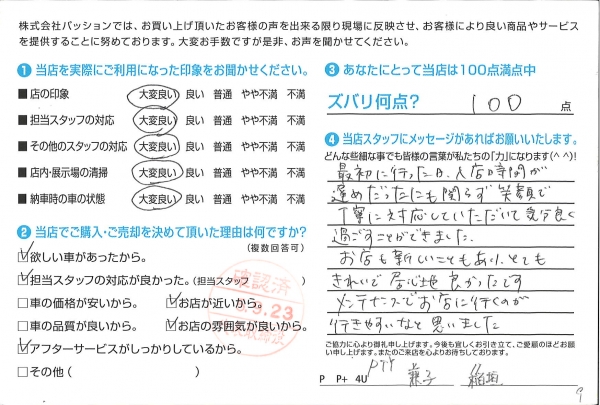 株式会社パッションでは、お買い上げ頂いたお客様の声を出来る限り現場に反映させ、お客様により良い商品やサービス
を提供することに努めております。大変お手数ですが是非、お声を聞かせてください。
① 当店を実際にご利用になった印象をお聞かせください。
■店の印象 大変良い 良い 普通 やや不満 不満
■担当スタッフの対応 大変良い 良い 普通 やや不満 不満
■その他のスタッフの対応 大変良い 良い 普通 やや不満 不満
■店内・展示場の清掃 大変良い 良い 普通 やや不満 不満
■納車時の車の状態 大変良い 良い 普通 やや不満 不満
② 当店でご購入・ご売却を決めて頂いた理由は何ですか?
(複数回答可)
☑欲しい車があったから。
☑担当スタッフの対応が良かった。(担当スタッフ )
□車の価格が安いから。 ☑お店が近いから。
□車の品質が良いから。 ☑お店の雰囲気が良いから。
☑アフターサービスがしっかりしているから。
□その他( )
確認済
3.23
③ あなたにとって当店は100点満点中
ズバリ何点? 100 点
④ 当店スタッフにメッセージがあればお願いいたします。
どんな些細な事でも皆様の言葉が私たちの「力」になります(^^)!
最初に行った日、入店時間が
遅めだったにも関らず笑顔で
丁寧に対応していただいて気分良く
過ごすことができました。
お店も新しいこともあり、とても
きれいで居心地良かったです
メンテナンスでお店に行くのが
行きやすいなと思いました
ご協力に心より御礼申し上げます。今後も宜しくお引き立て、ご愛顧のほどお願
い申し上げます。またのご来店を心よりお待ちしております。
P P+ 4U
稲垣
9